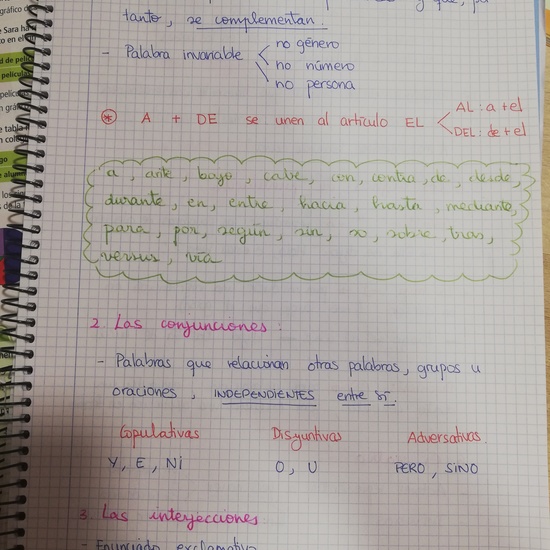 tanto, se complementan.
- Palabra invariable
no género
no número
no persona
* A + DE se unen al artículo EL
AL: a + el
DEL: de + el
a, ante, bajo, cabe, con, contra, de, desde,
durante, en, entre, hacia, hasta, mediante,
para, por, según, sin, so, sobre, tras,
versus, vía
2. Las conjunciones.
- Palabras que relacionan otras palabras, grupos u
oraciones, INDEPENDIENTES entre sí.
Copulativas Disyuntivas Adversativas
Y, E, Ni O, U PERO, SINO
3. Las interjecciones.
- Enunciado exclamativo